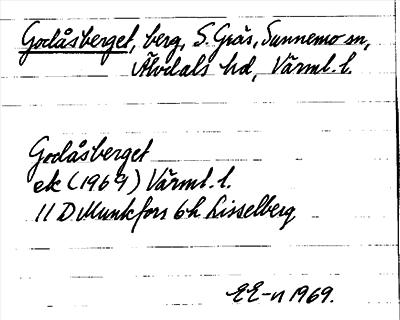 Godåsberget, berg, S. Gräs, Sunnemo sn,
Älvdals hd, Värml. l.
Godåsberget
ek (1969) Värml. l.
11 D Munkfors 6h Lisselberg
EE-n 1969.